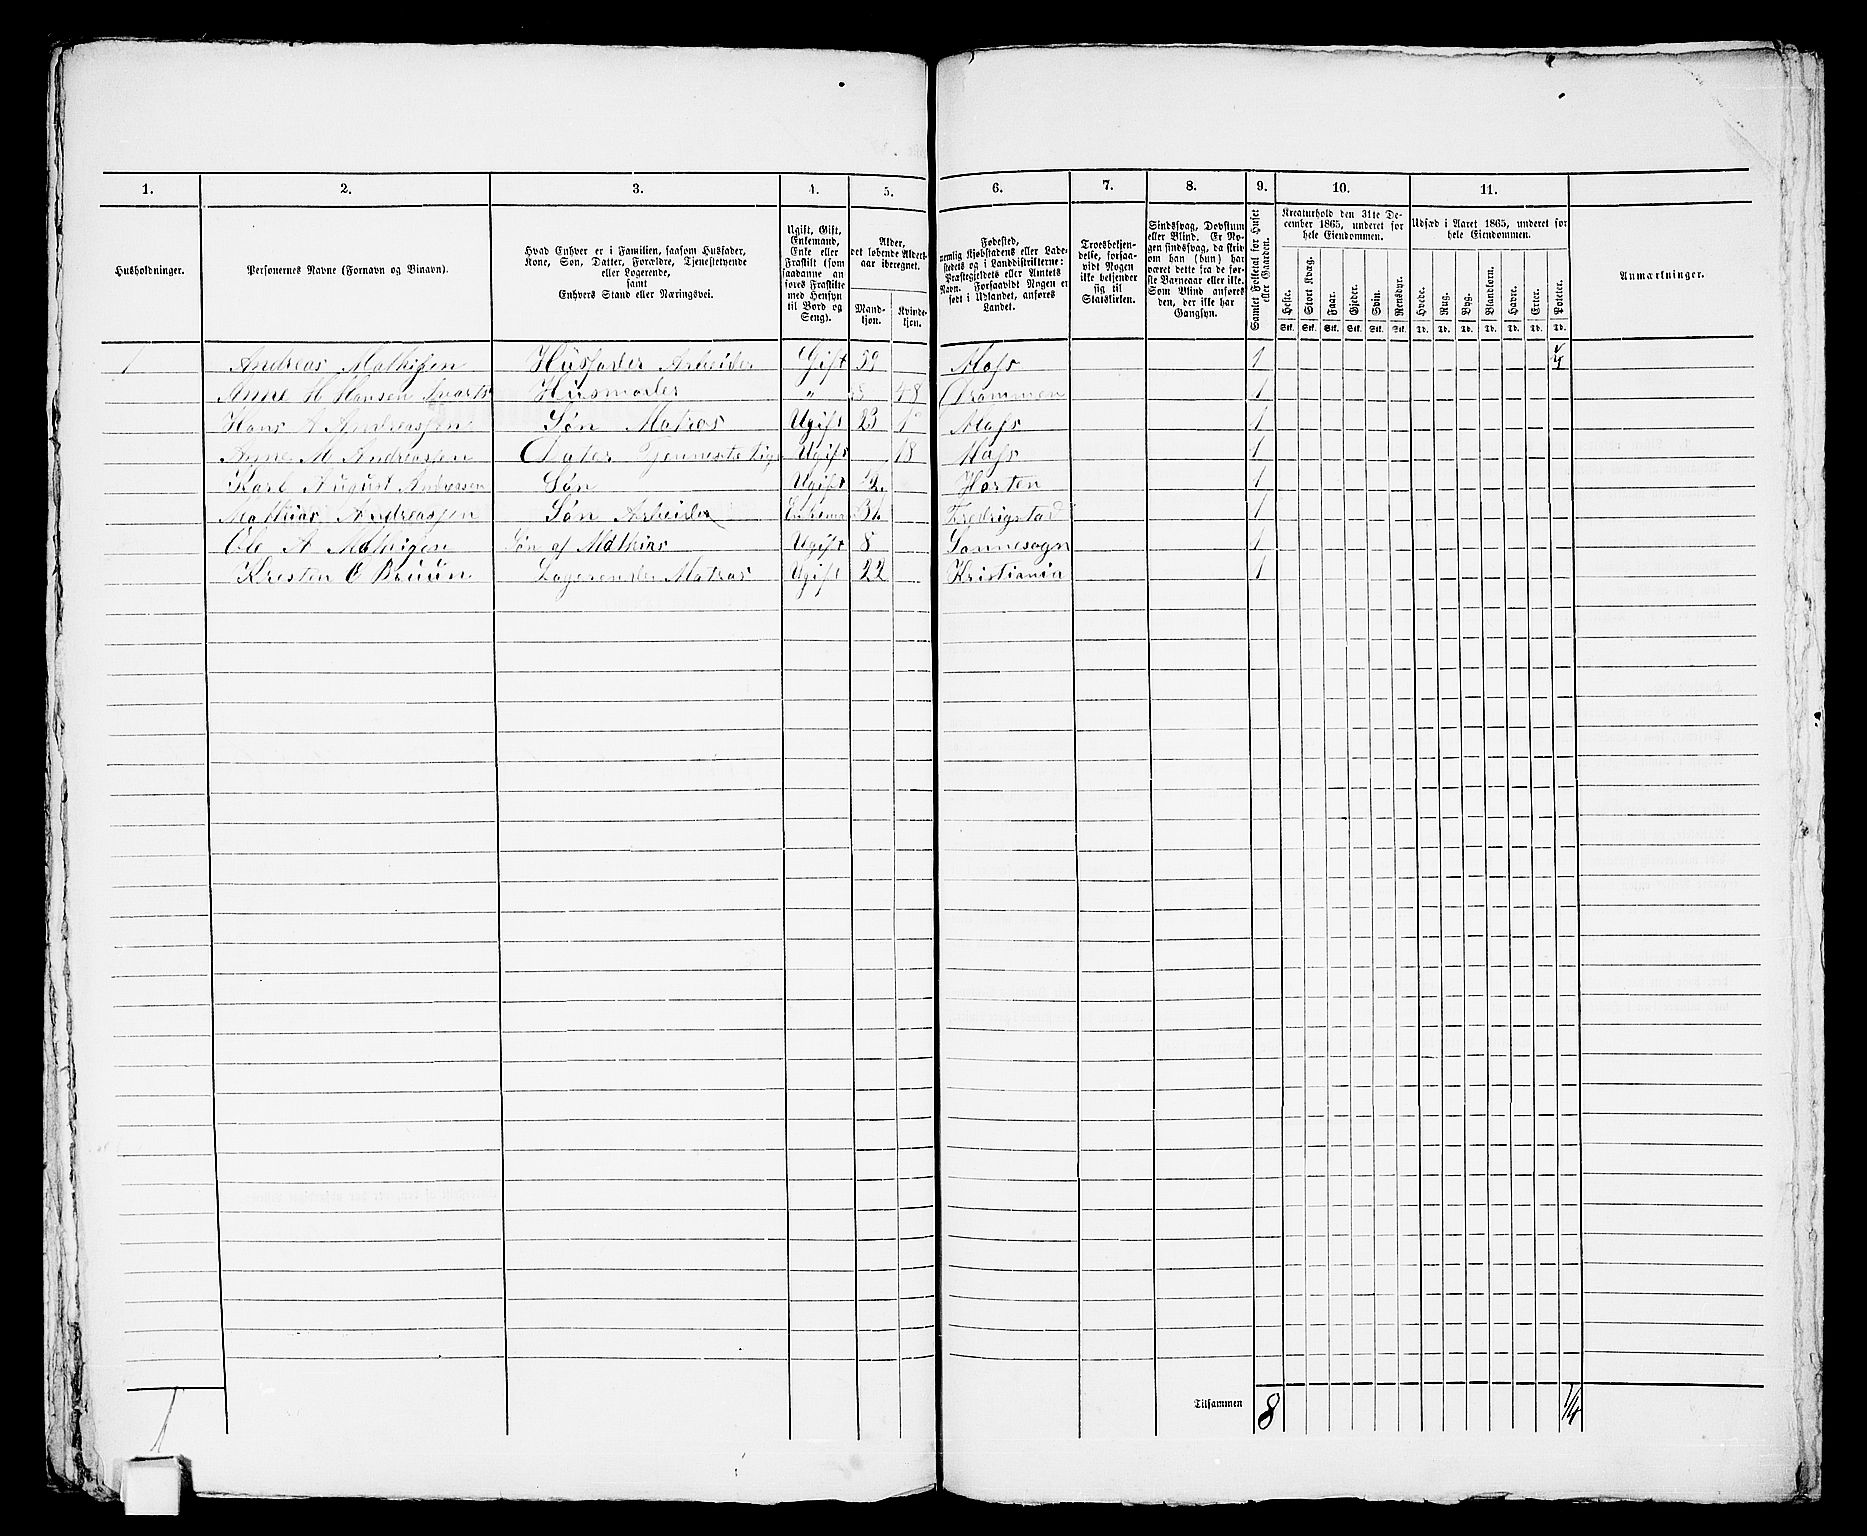 1. 2. 3. 4. 5. 6. 7. 8. 9. 10. 11.
Husholdninger.
Personernes Navne (Fornavn og Binavn).
Hvad Enhver er i Familien, saasom Husfader,
Kone, Søn, Datter, Forældre, Tjenestetyende
eller Logerende,
samt
Enhvers Stand eller Næringsvei.
Ugift, Gift,
Enkemand,
Enke eller
Fraskilt (som
saadanne an
føres Fraskilte
med Hensyn
til Bord og
Seng).
Alder,
det løbende Alders-
aar iberegnet.
Mand-
kjøn.
Kvinde-
kjøn.
Fødested,
nemlig Kjøbstadens eller Lade-
stedets og i Landdistrikterne:
Præstegjeldets eller Amtets
Navn. Forsaavidt Nogen er
født i Udlandet, anføres
Landet.
Troesbekjen-
delse, forsaa-
vidt Nogen
ikke bekjender
sig til
Statskirken.
Sindssvag, Døvstum
eller Blind. Er No-
gen sindssvag, da skriv
om han (hun) har
været dette fra de før-
ste Barneaar eller ikke.
Som Blind anføres
den, der ikke har
Gangsyn.
Samlet Folketal for Huset
eller Gaarden.
Kreaturhold den 31te De-
cember 1865, underet for
hele Eiendommen.
Heste. Stort Kvæg. Faar. Gjeder. Svin. Rensdyr.
Stk. Stk. Stk. Stk. Stk. Stk.
Udsæd i Aaret 1865, underet for
hele Eiendommen.
Hvede. Rug. Byg. Blandkorn. Havre. Erter. Poteter.
Td. Td. Td. Td. Td. Td. Td.
Anmærkninger.
1 Andreas Mathisen Husfader Arbeider Gift 59 Moss 1
Anne H Hansen Husmoder „ 48 Drammen 1
Hans A Andreassen Søn Matros Ugift 23 Moss 1
M Andreassen Dater Tjenneste Ugift 18 Moss 1
Karl August Andreassen Søn Ugift Horten 1
Mathias Andreassen Søn Arbeider Fredrigstad 1
Ole A Mathisen Søn af Mathias Ugift 8 Sannesogn 1
Kristen Bruun Logerende Matros Ugift 22 Kristiania 1
1 Tilsammen 8 1/4